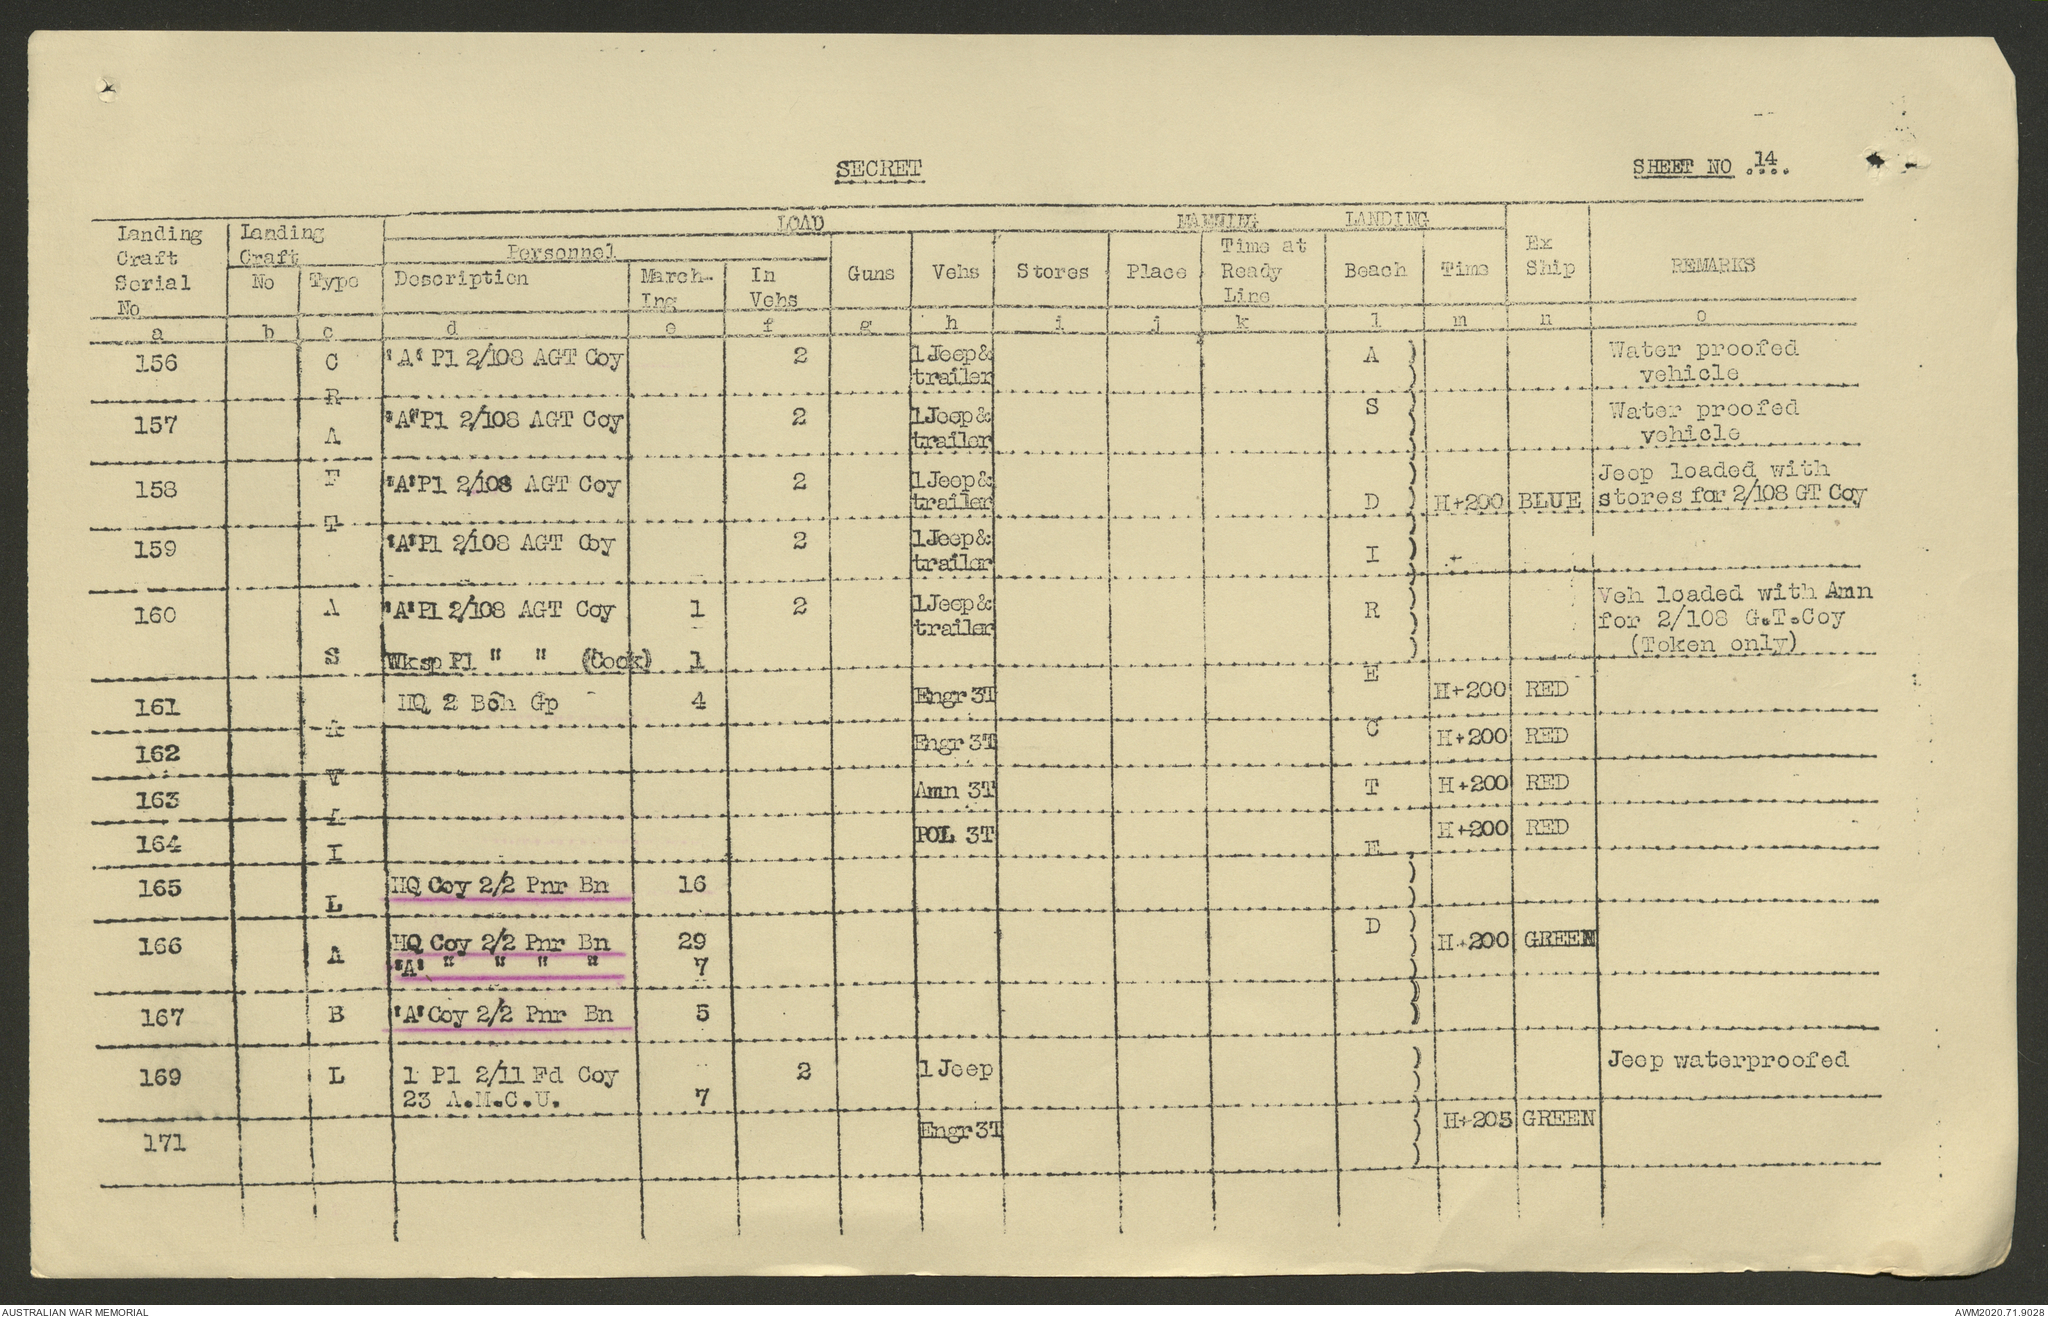 SECRET
SHEET NO 14
Landing Craft Serial No
Landing Craft
No
Type
LOAD
Personnel
Description
March-
Ing
In
Vehs
Guns
Vehs
Stores
MANNING
Place
Time at
Ready
Line
LANDING
Beach
Time
Ex
Ship
REMARKS
a b c d e f g h i j k l m n o
156 "A" Pl 2/108 AGT Coy 2 1 Jeep & trailer Water proofed vehicle
157 "A" Pl 2/108 AGT Coy 2 1 Jeep & trailer Water proofed vehicle
158 "A" Pl 2/108 AGT Coy 2 1 Jeep & trailer H+200 BLUE Jeep loaded with stores for 2/108 GT Coy
159 "A" Pl 2/108 AGT Coy 2 1 Jeep & trailer
160 "A" Pl 2/108 AGT Coy 1 2 1 Jeep & trailer Veh loaded with Amn for 2/108 G.T.Coy (Token only)
Wksp Pl " " (Cook) 1
161 HQ 2 Bch Gp 4 Engr 3T H+200 RED
162 Engr 3T H+200 RED
163 Amn 3T H+200 RED
164 POL 3T H+200 RED
165 HQ Coy 2/2 Pnr Bn 16
166 HQ Coy 2/2 Pnr Bn 29 H+200 GREEN
"A" " " " " 7
167 "A" Coy 2/2 Pnr Bn 5
169 1 Pl 2/11 Fd Coy 2 1 Jeep Jeep waterproofed
23 A.M.C.U. 7
171 Engr 3T H+205 GREEN
C R A F T A S A V A I L A B L E
A S D I R E C T E D
AUSTRALIAN WAR MEMORIAL
AWM2020.71.9028